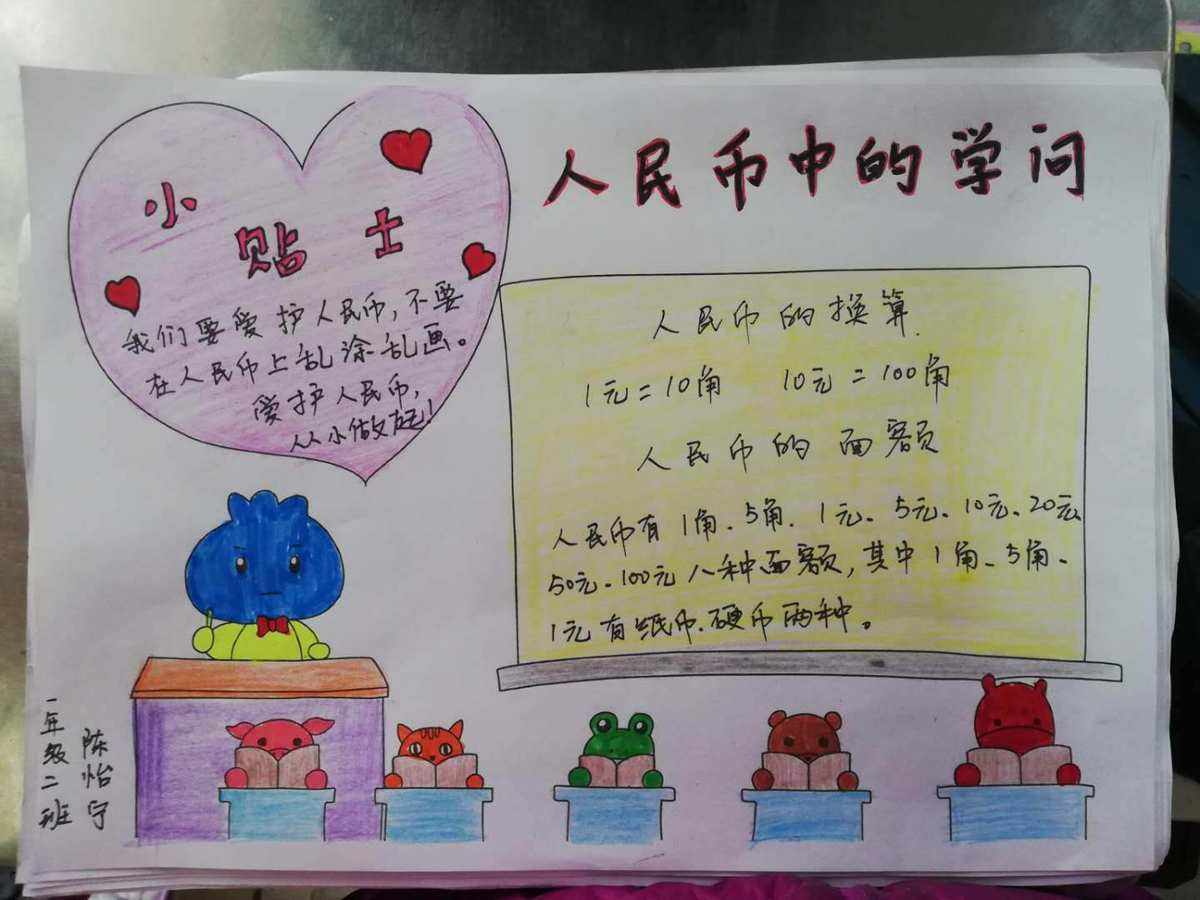 人民币中的学问
小贴士
我们要爱护人民币,不要
在人民币上乱涂乱画。
爱护人民币,
从小做起!
人民币的换算
1元=10角 10元=100角
人民币的面额
人民币有1角、5角、1元、5元、10元、20元、
50元、100元八种面额,其中1角、5角、
1元有纸币、硬币两种。
一年级二班
陈怡宁